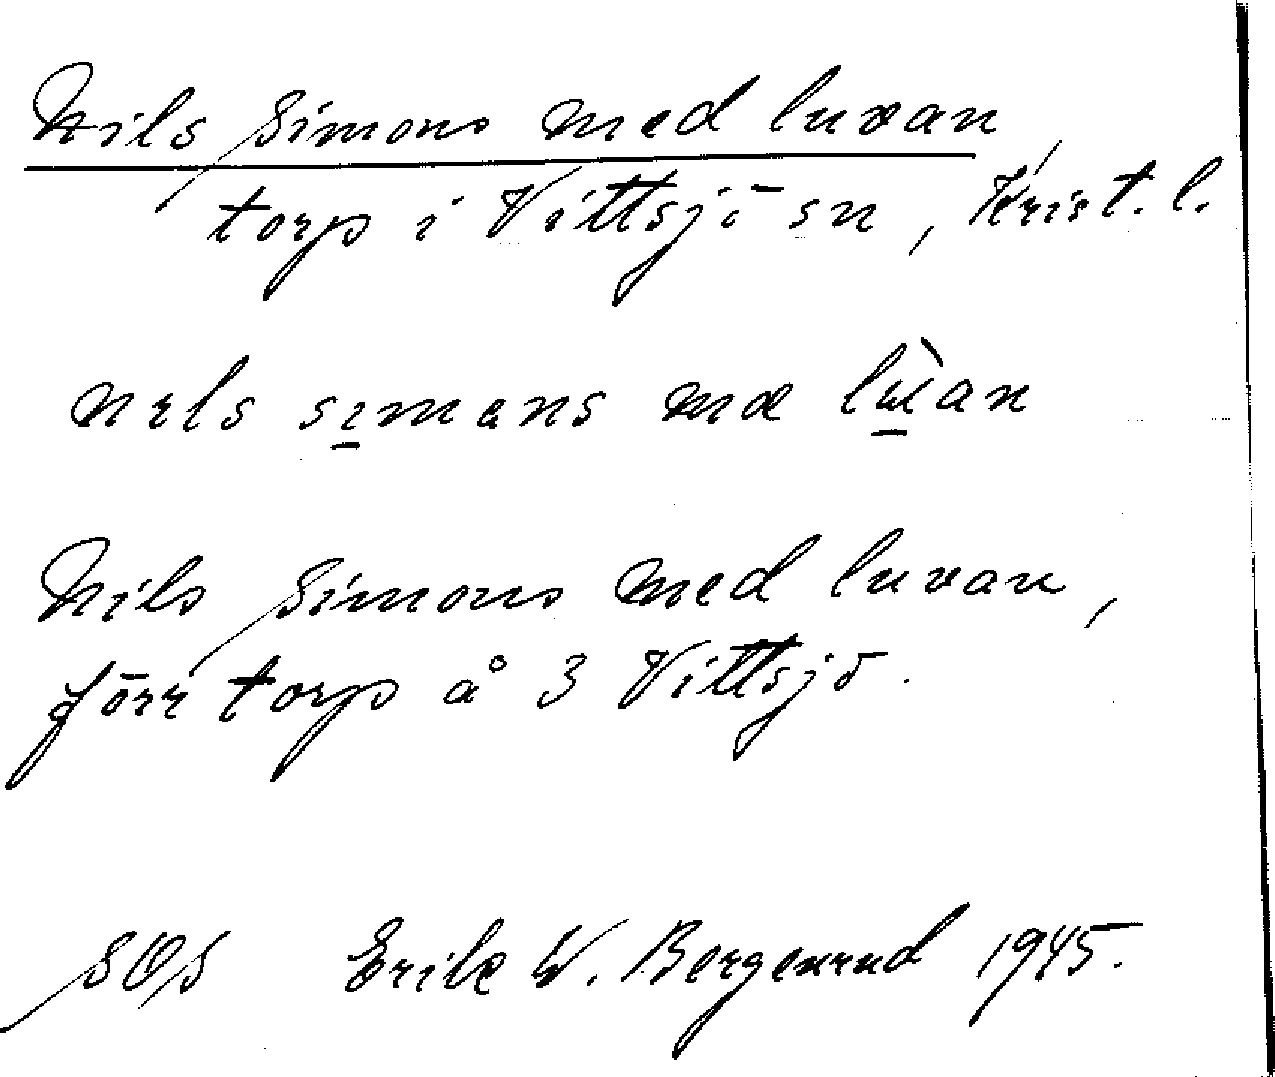 Nils Simons med luvan
torp i Vittsjö sn, Krist. l.
Nils Simons med luvan,
förr torp å 3 Vittsjö.
SOS Erik W. Bergenrud 1945.